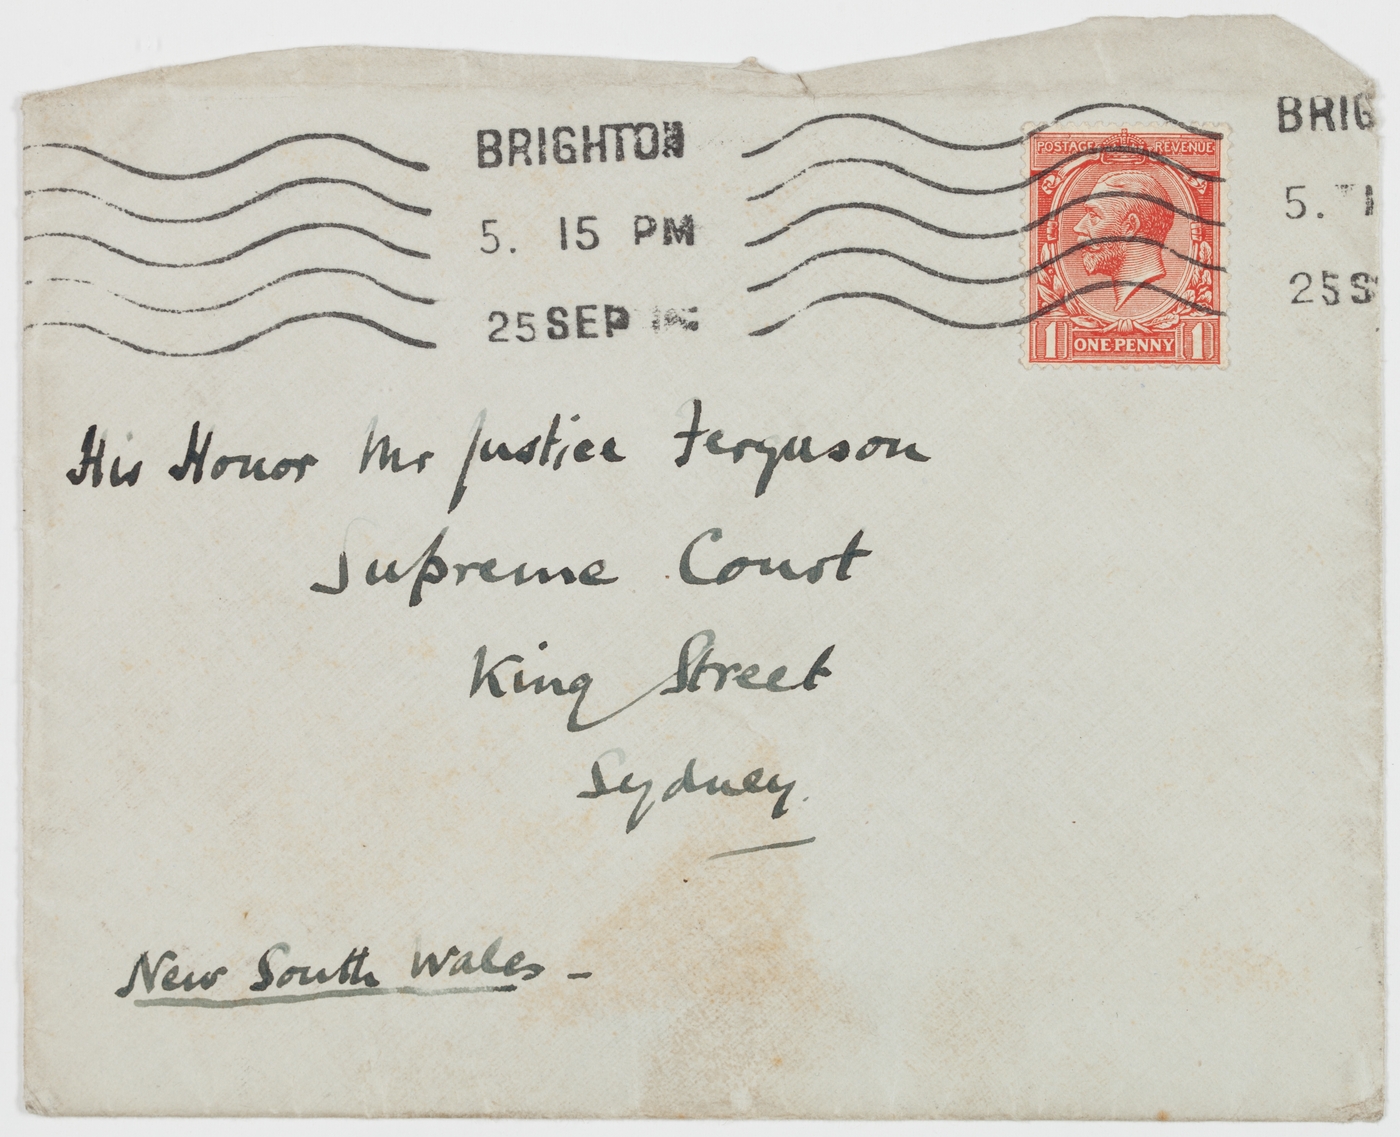 BRIGHTON
5. 15 PM
25 SEP
BRIG
5. 1
25 S
POSTAGE REVENUE
1 ONE PENNY 1
His Honor Mr Justice Ferguson
Supreme Court
King Street
Sydney.
New South Wales -